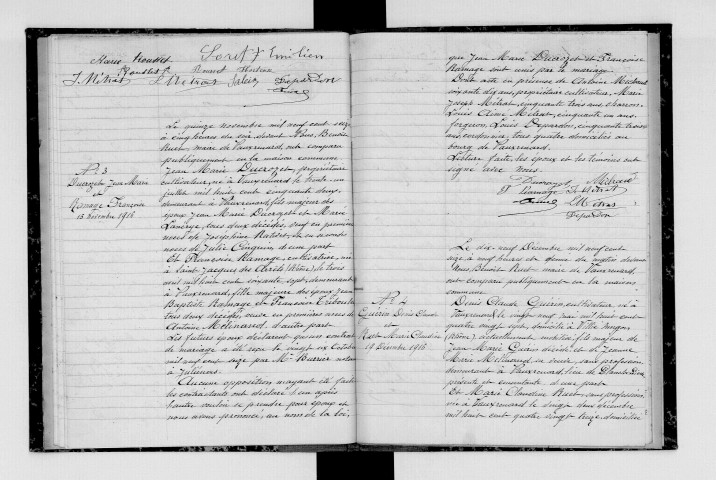 Marie Rousset Loref Emilien
J. Métrat
N° 3
Ducrozet Jean Marie
et
Ramage Françoise
15 Décembre 1916
Le quinze novembre mil neuf cent seize
à cinq heures du soir devant Nous, Benoît
Ruet, maire de Vauxrenard, ont comparu
publiquement en la maison commune
Jean Marie Ducrozet, propriétaire
cultivateur, né à Vauxrenard le huit
juillet mil huit cent cinquante deux,
demeurant à Vauxrenard, fils majeur des
époux Jean Marie Ducrozet et Marie
tous deux décédés, veuf en première
noces de Joséphine et en secondes
noces de Julie d'une part
Et Françoise Ramage, cultivatrice, née
à Saint Jacques des Arrêts (Rhône) le trois
avril mil huit cent soixante sept, demeurant
à Vauxrenard, fille majeure des époux Jean
Baptiste Ramage et Françoise
tous deux décédés, veuve en premières noces de
Antoine Mélinand, d'autre part.
Les futurs époux déclarent qu'un contrat
de mariage a été reçu le vingt six Octobre
mil neuf cent seize par Me Burrier notaire
à Juliénas.
Aucune opposition n'ayant été faite
les contractants ont déclaré l'un après
l'autre vouloir se prendre pour époux et
nous avons prononcé, au nom de la loi,
que Jean Marie Ducrozet et Françoise
Ramage sont unis par le mariage.
Dont acte en présence de Antoine Michaud
soixante dix ans, propriétaire cultivateur, Marie
Joseph Métrat, cinquante trois ans charron,
Louis Aimé Métrat, cinquante un ans,
forgeron, Louis Depardon, cinquante trois
ans cordonnier, tous quatre domiciliés au
bourg de Vauxrenard.
Lecture faite, les époux et les témoins ont
signé avec Nous.
Ducrozet Michaud
F. Ramage J. Métrat
L. Métras
Depardon
N° 4
Guérin Denis Claude
et
Ruet Marie Claudine
19 Décembre 1916
Le dix neuf Décembre mil neuf cent
seize, à neuf heures et demie du matin devant
Nous, Benoît Ruet, maire de Vauxrenard,
ont comparu publiquement en la maison
commune
Denis Claude Guérin, cultivateur, né à
Vauxrenard le vingt neuf mai mil huit cent
quatre vingt sept, domicilié à Villié Morgon
(Rhône), actuellement mobilisé, fils majeur de
Jean Marie Guérin décédé et de Jeanne
Marie sa veuve, sans profession
demeurant à Vauxrenard,
présente et consentante, d'une part
Et Marie Claudine Ruet, sans profession
née à Vauxrenard le vingt deux décembre
mil huit cent quatre vingt onze, domiciliée